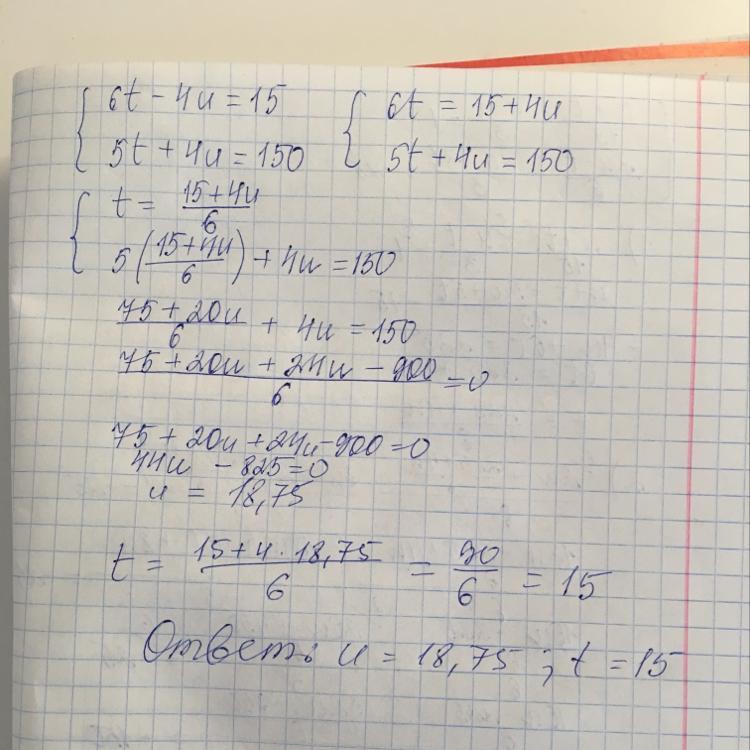 6t - 4u = 15
5t + 4u = 150
6t = 15 + 4u
5t + 4u = 150
t = (15 + 4u)/6
5((15 + 4u)/6) + 4u = 150
(75 + 20u)/6 + 4u = 150
(75 + 20u + 24u - 900)/6 = 0
75 + 20u + 24u - 900 = 0
44u - 825 = 0
u = 18,75
t = (15 + 4 · 18,75)/6 = 90/6 = 15
Ответ: u = 18,75 ; t = 15